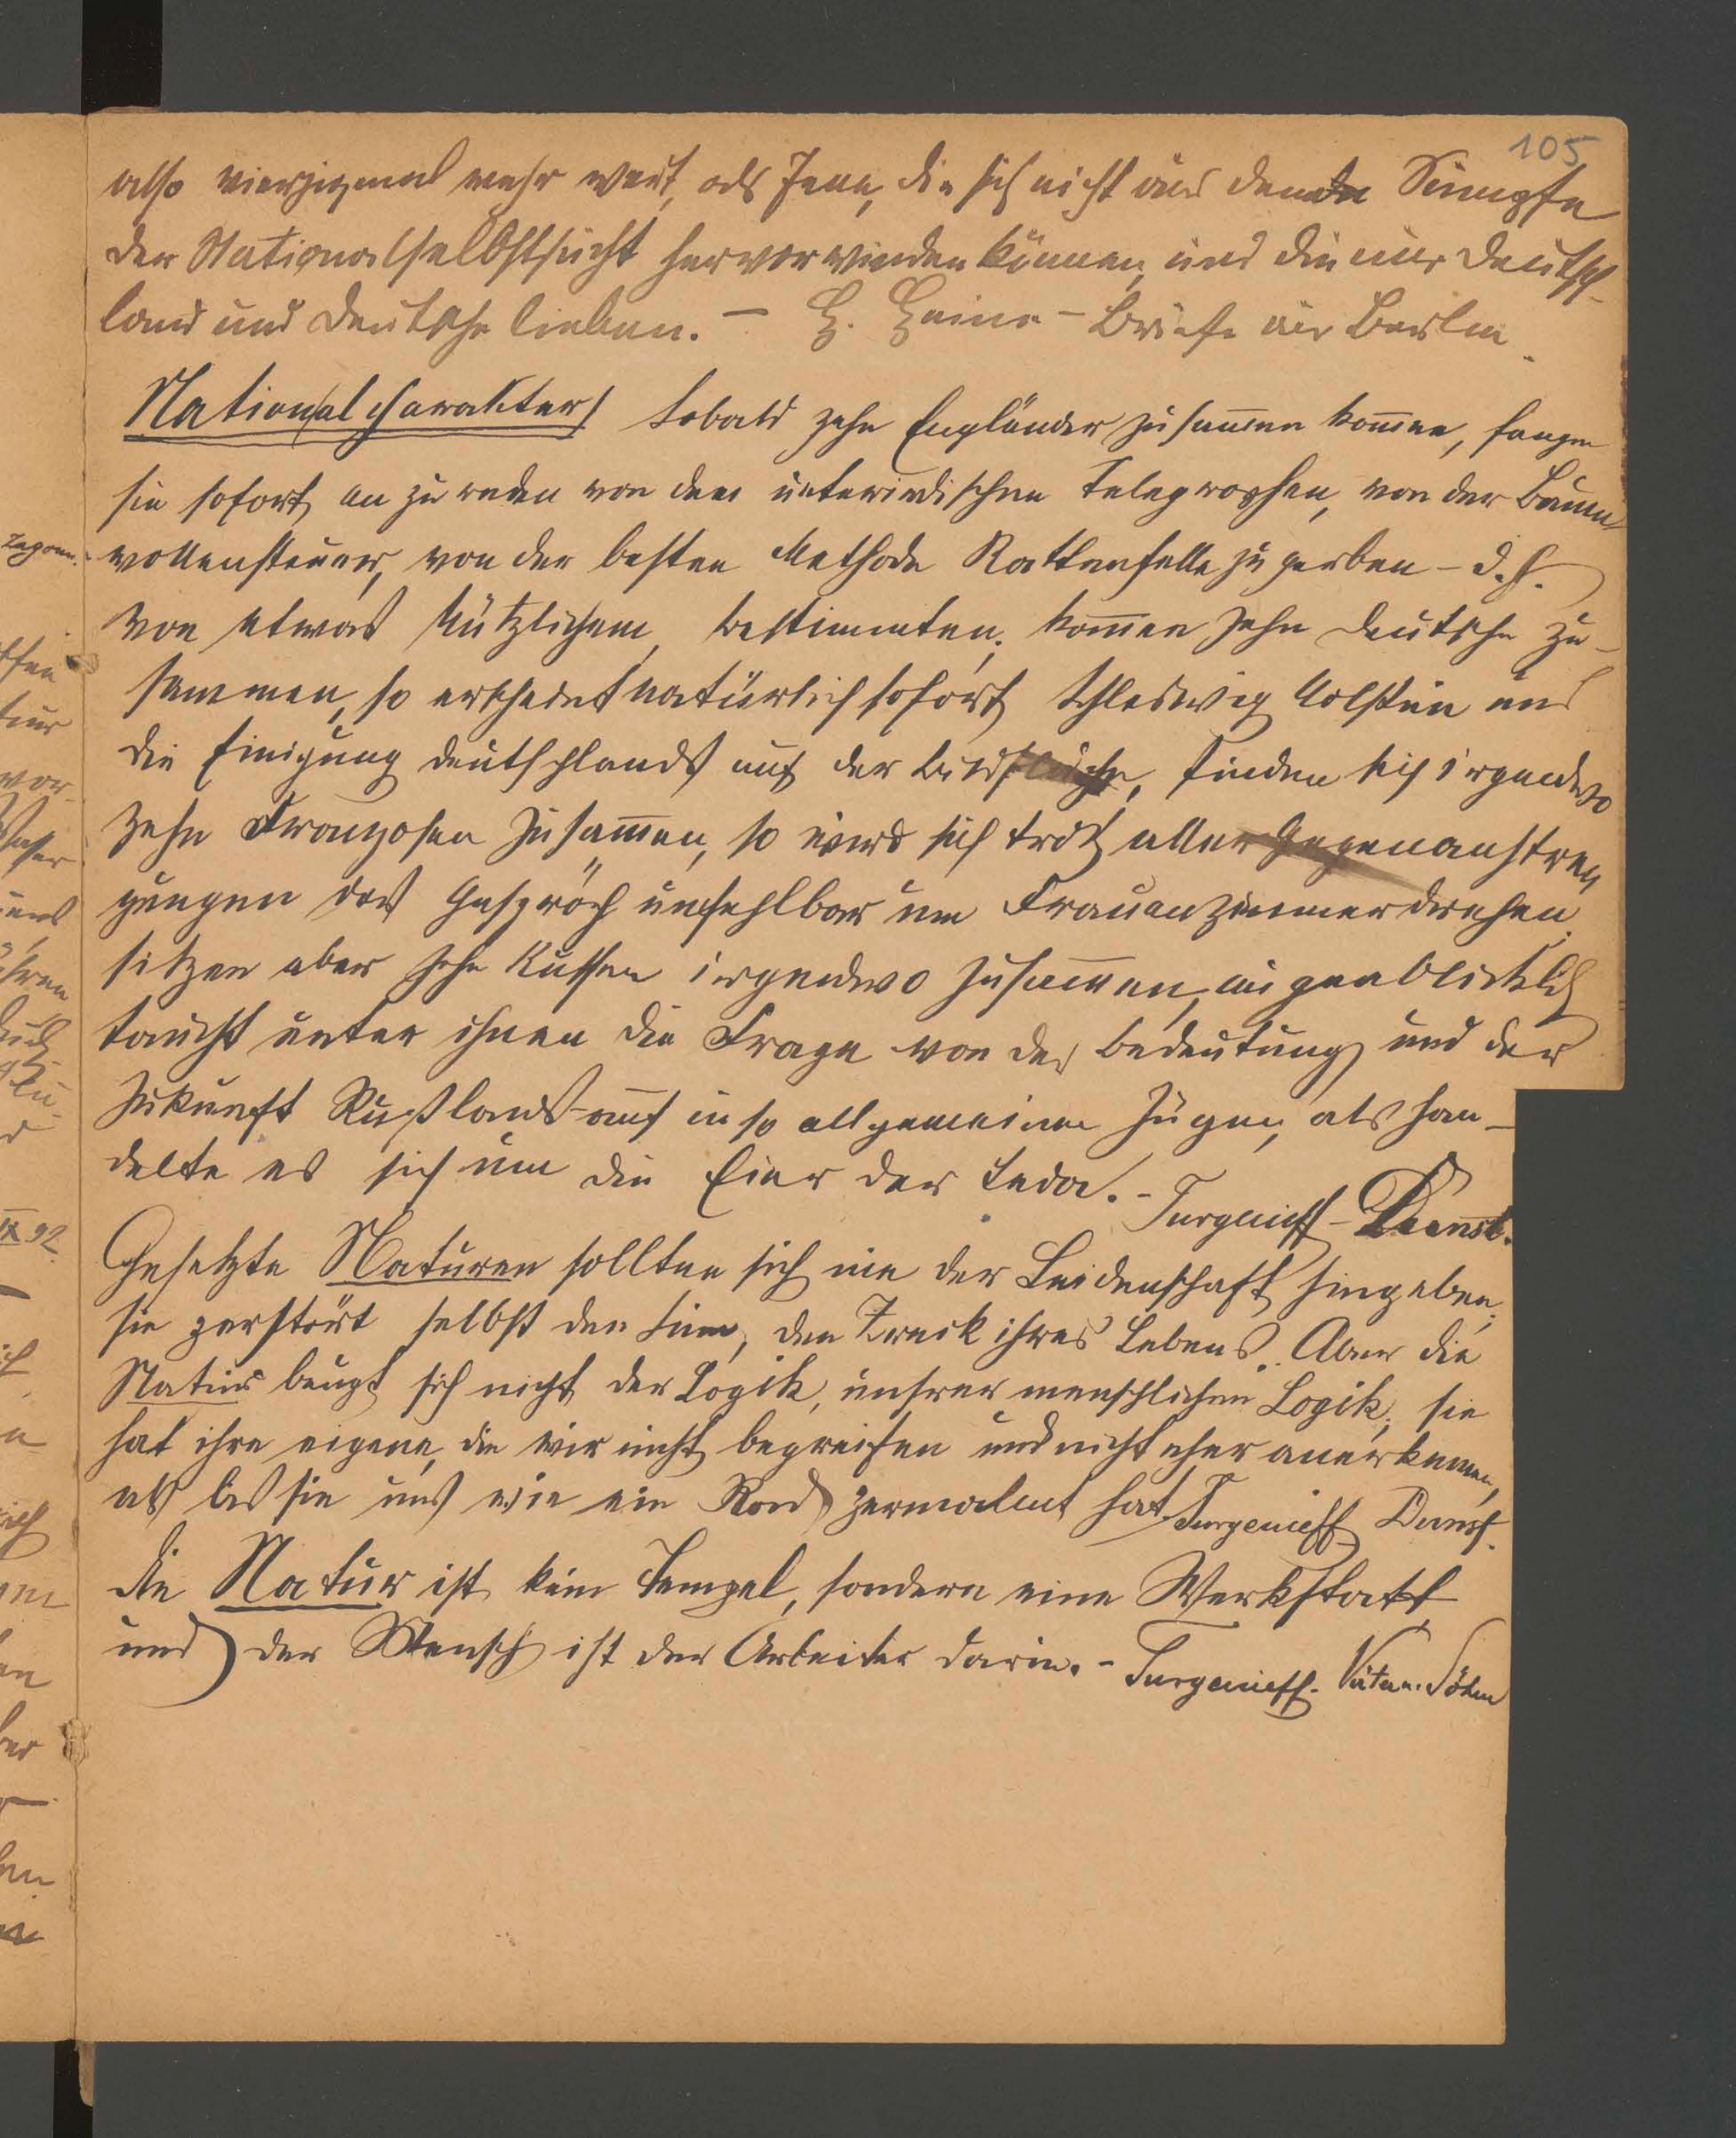 105
also vierzigmal mehr wert, als Jene, die sich nicht aus dem Sumpfe
der Nationalselbstsucht hervorwinden können, und die nur Deutsch-
land und Deutsche lieben. – H. Heine – Briefe aus Berlin.
Nationalcharakter/ Sobald zehn Engländer zusam̄en kom̄en, fangen
sie sofort an zu reden von dem unterirdischen Telegraphen, von der Baum-
wollensteuer, von der besten Methode Rattenfelle zu gerben – d. h.
von etwas Nützlichem, bestimmten; kom̄en zehn Deutsche zu-
sammen, so erscheint natürlich sofort Schleswig Holstein und
die Einigung Deutschlands auf der Bildfläche, finden sich irgendwo
zehn Franzosen zusam̄en, so wird sich trotz aller Gegenanstren
gungen das Gespräch unfehlbar um Frauenzimmer drehen.
sitzen aber zehn Russen irgendwo zusammen, augenblicklich
taucht unter ihnen die Frage von der Bedeutung und der
Zukunft Rußlands auf in so allgemeinen Zügen, als han-
delte es sich um die Eier der Leda. – Turgenieff – Dunst.
Gesetzte Naturen sollten sich nie der Leidenschaft hingeben,
sie zerstört selbst den Sinn, den Zweck ihres Lebens. Aber die
Natur beugt sich nicht der Logik, unsrer menschlichen Logik; sie
hat ihre eigene, die wir nicht begreifen und nicht eher anerkennen,
als bis sie uns wie ein Rad zermalmt hat. Turgenieff Dunst.
Die Natur ist kein Tempel, sondern eine Werkstatt
und der Mensch ist der Arbeiter darin. – Turgenieff. Väter u. Söhne